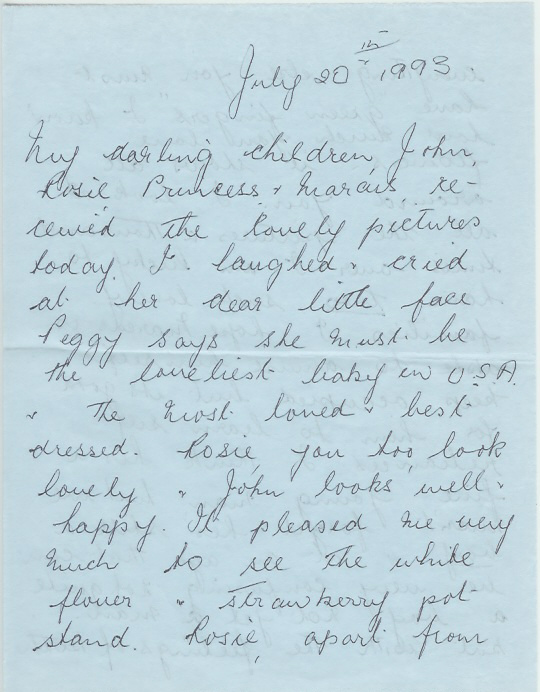 July 20th 1993
My darling children, John,
Rosie Princess & Marais re-
ceived the lovely pictures
today I laughed & cried
at her dear little face.
Peggy says she must be
the loveliest baby in U.S.A.
& the most loved & best
dressed. Rosie, you too, look
lovely & John looks well &
happy. It pleased me very
much to see the white
flower & strawberry pot
stand. Rosie, apart from